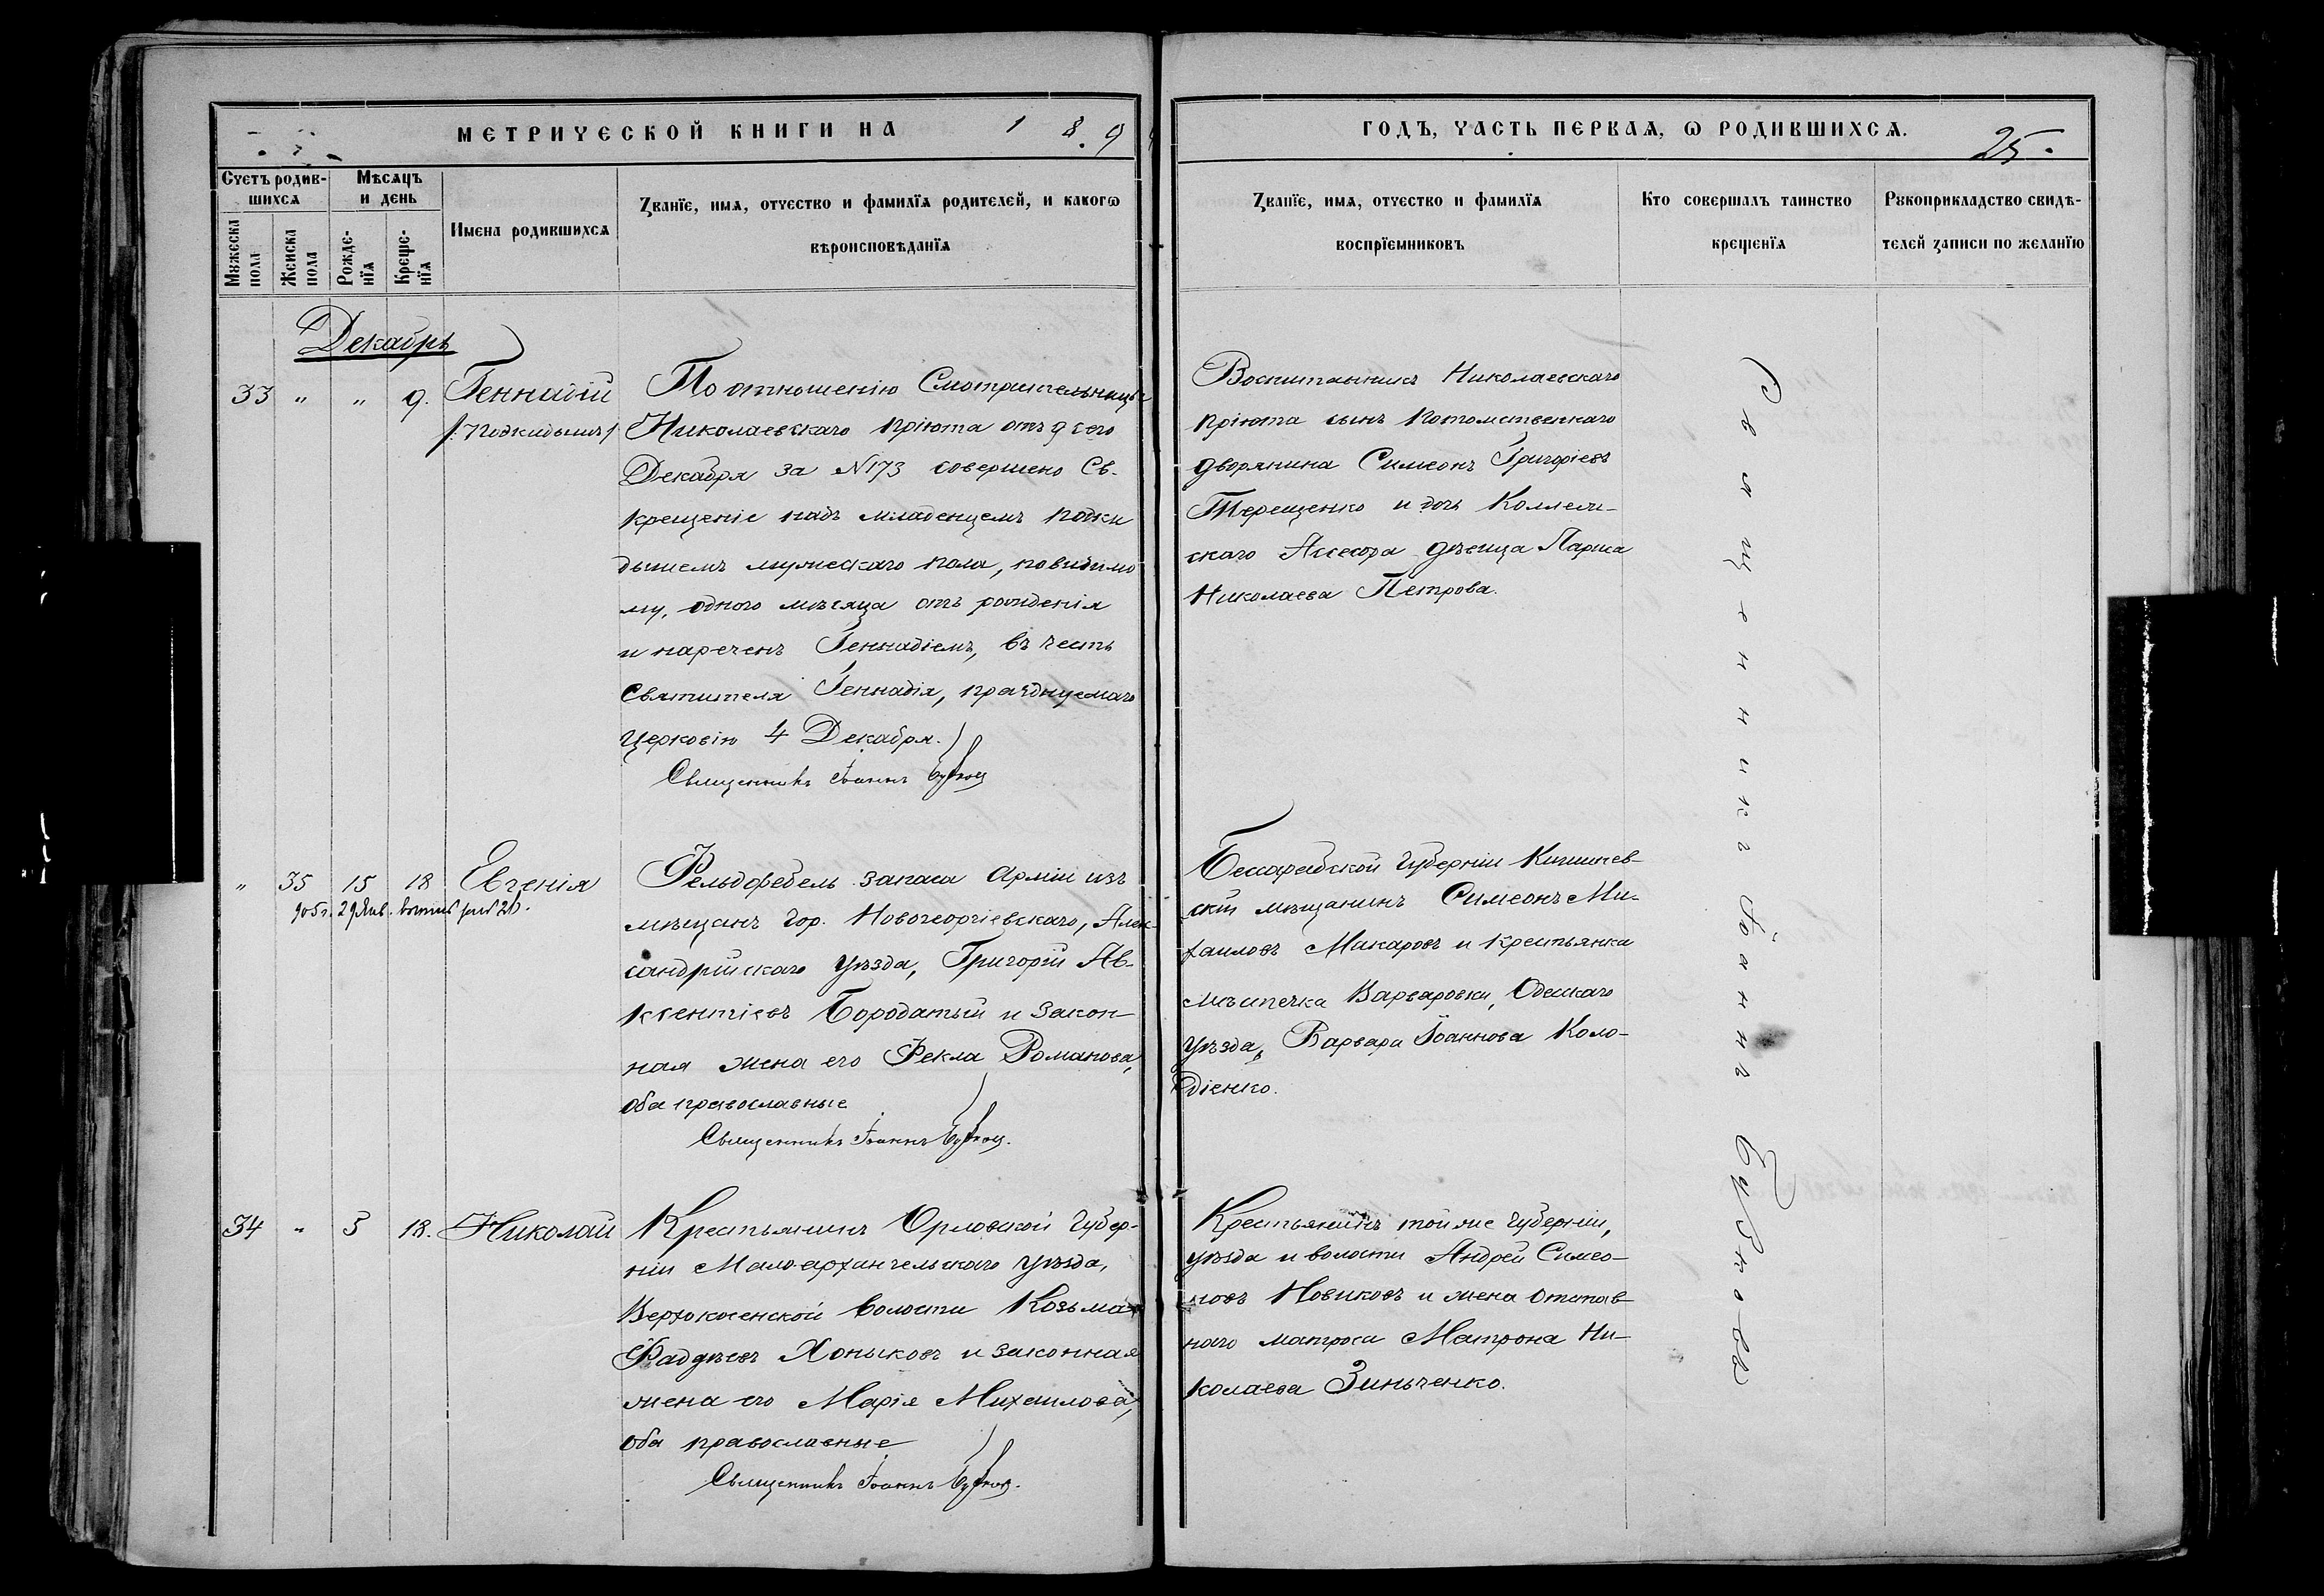 МЕТРИЧЕСКОЙ КНИГИ НА 189
ГОДЪ, ЧАСТЬ ПЕРВАЯ, Ѡ РОДИВШИХСЯ.
25.
Счетъ родив-
шихся
Мѣсяцъ
и день
Мꙋжеска
пола
Женска
пола
Рожде-
нїя
Креще-
нїя
Имена родившихся
Званїе, имя, отчество и фамилїя родителей, и какогѡ
вѣроисповѣданїя
Званїе, имя, отчество и фамилїя
воспрїемниковъ
Кто совершалъ таинство
крещенїя
Рꙋкоприкладство свидѣ-
телей записи по желанїю
Декабрь
33 " " 9. Геннадій
/: Подкидышъ /
По отношенію Смотрительницы
Николаевскаго пріюта отъ 9 сего
Декабря за № 173 совершено Св.
крещеніе надъ младенцемъ подки
дышемъ мужескаго пола, повидимо
му, одного мѣсяца отъ рожденія
и нареченъ Геннадіемъ, въ честь
Святителя Геннадія, празднуемаго
Церковію 4 Декабря.
Священникъ Іоаннъ
Воспитанникъ Николаевскаго
пріюта сынъ потомственнаго
дворянина Симеонъ Григоріевъ
Терещенко и дочь Коллеж-
скаго Ассесора дѣвица Лариса
Николаева Петрова.
" 35 15 18 Евгенія
905 г. 29 Янв.
Фельдфебель запаса Арміи изъ
мѣщанъ гор. Новогеоргіевскаго, Алек-
сандрійскаго уѣзда, Григорій Ав-
ксентіевъ Бородатый и закон-
ная жена его Фекла Романова,
оба православные
Священникъ Іоаннъ
Бессарабской губерніи Кишинев-
скій мѣщанинъ Симеонъ Ми-
хаиловъ Макаровъ и крестьянка
мѣстечка Варваровки, Одесскаго
уѣзда, Варвара Іоаннова Коло-
діенко.
34 " 3 18. Николай
Крестьянинъ Орловской губер-
ніи Мало-архангельскаго уѣзда,
Верхососенской волости Козьма
Фаддѣевъ Хоныковъ и законная
жена его Марія Михаилова,
оба православные
Священникъ Іоаннъ
Крестьянинъ той же губерніи,
уѣзда и волости Андрей Симео-
новъ Новиковъ и жена отстав-
наго матроса Матрона Ни-
колаева Зинченко.
Священникъ Іоаннъ